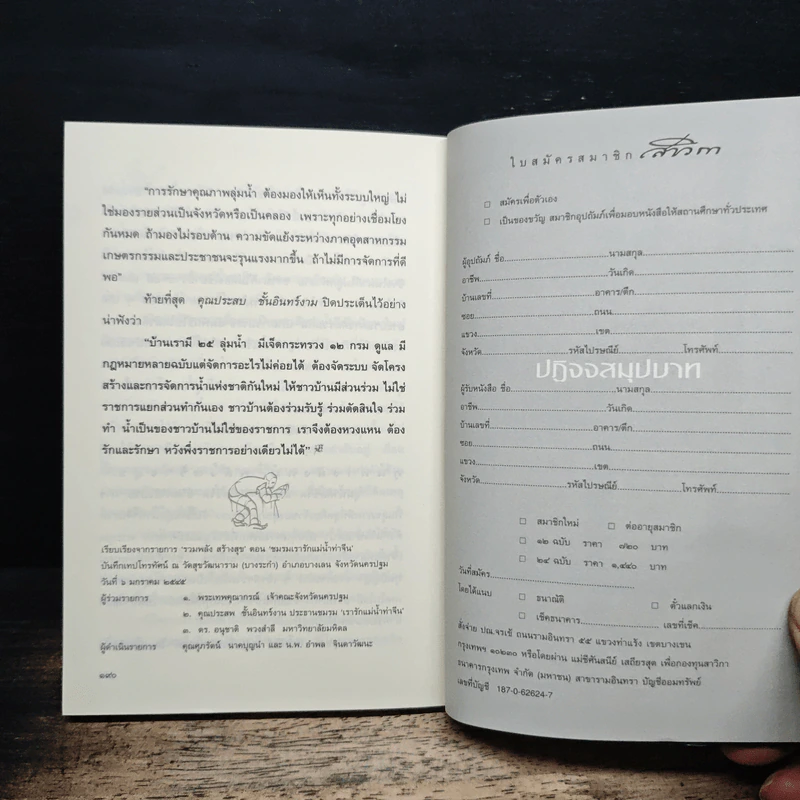 "การรักษาคุณภาพลุ่มน้ำ ต้องมองให้เห็นทั้งระบบใหญ่ ไม่
ใช่มองรายส่วนเป็นจังหวัดหรือเป็นคลอง เพราะทุกอย่างเชื่อมโยง
กันหมด ถ้ามองไม่รอบด้าน ความขัดแย้งระหว่างภาคอุตสาหกรรม
เกษตรกรรมและประชาชนจะรุนแรงมากขึ้น ถ้าไม่มีการจัดการที่ดี
พอ"
ท้ายที่สุด คุณประสบ ชั้นอินทร์งาม ปิดประเด็นไว้อย่าง
น่าฟังว่า
"บ้านเรามี ๒๕ ลุ่มน้ำ มีเจ็ดกระทรวง ๑๒ กรม ดูแล มี
กฎหมายหลายฉบับแต่จัดการอะไรไม่ค่อยได้ ต้องจัดระบบ จัดโครง
สร้างและการจัดการน้ำแห่งชาติกันใหม่ ให้ชาวบ้านมีส่วนร่วม ไม่ใช่
ราชการแยกส่วนทำกันเอง ชาวบ้านต้องร่วมรับรู้ ร่วมตัดสินใจ ร่วม
ทำ น้ำเป็นของชาวบ้านไม่ใช่ของราชการ เราจึงต้องหวงแหน ต้อง
รักและรักษา หวังพึ่งราชการอย่างเดียวไม่ได้"
เรียบเรียงจากรายการ 'รวมพลัง สร้างสุข' ตอน 'ชมรมเรารักแม่น้ำท่าจีน'
บันทึกเทปโทรทัศน์ ณ วัดสุขวัฒนาราม (บางระกำ) อำเภอบางเลน จังหวัดนครปฐม
วันที่ ๖ มกราคม ๒๕๔๕
ผู้ร่วมรายการ ๑. พระเทพคุณาภรณ์ เจ้าคณะจังหวัดนครปฐม
๒. คุณประสพ ชั้นอินทร์งาน ประธานชมรม 'เรารักแม่น้ำท่าจีน'
๓. ดร. อนุชาติ พวงสำลี มหาวิทยาลัยมหิดล
ผู้ดำเนินรายการ คุณศุภรัตน์ นาคบุญนำ และ น.พ. อำพล จินดาวัฒนะ
๑๙๖
ใบสมัครสมาชิก สาวิกา
☐ สมัครเพื่อตัวเอง
☐ เป็นของขวัญ สมาชิกอุปถัมภ์เพื่อมอบหนังสือให้สถานศึกษาทั่วประเทศ
ผู้อุปถัมภ์ ชื่อ....................นามสกุล....................
อาชีพ....................วันเกิด....................
บ้านเลขที่....................อาคาร/ตึก....................
ซอย....................ถนน....................
แขวง....................เขต....................
จังหวัด....................รหัสไปรษณีย์....................โทรศัพท์....................
ปฏิจจสมุปบาท
ผู้รับหนังสือ ชื่อ....................นามสกุล....................
อาชีพ....................วันเกิด....................
บ้านเลขที่....................อาคาร/ตึก....................
ซอย....................ถนน....................
แขวง....................เขต....................
จังหวัด....................รหัสไปรษณีย์....................โทรศัพท์....................
☐ สมาชิกใหม่ ☐ ต่ออายุสมาชิก
☐ ๑๒ ฉบับ ราคา ๗๒๐ บาท
☐ ๒๔ ฉบับ ราคา ๑,๔๔๐ บาท
วันที่สมัคร....................
โดยได้แนบ ☐ ธนาณัติ ☐ ตั๋วแลกเงิน
☐ เช็คธนาคาร....................เลขที่เช็ค....................
สั่งจ่าย ปณ.จรเข้ ถนนรามอินทรา ๕๕ แขวงท่าแร้ง เขตบางเขน
กรุงเทพฯ ๑๐๒๓๐ หรือโดยผ่าน แม่ชีศันสนีย์ เสถียรสุต เพื่อกองทุนสาวิกา
ธนาคารกรุงเทพ จำกัด (มหาชน) สาขารามอินทรา บัญชีออมทรัพย์
เลขที่บัญชี 187-0-62624-7